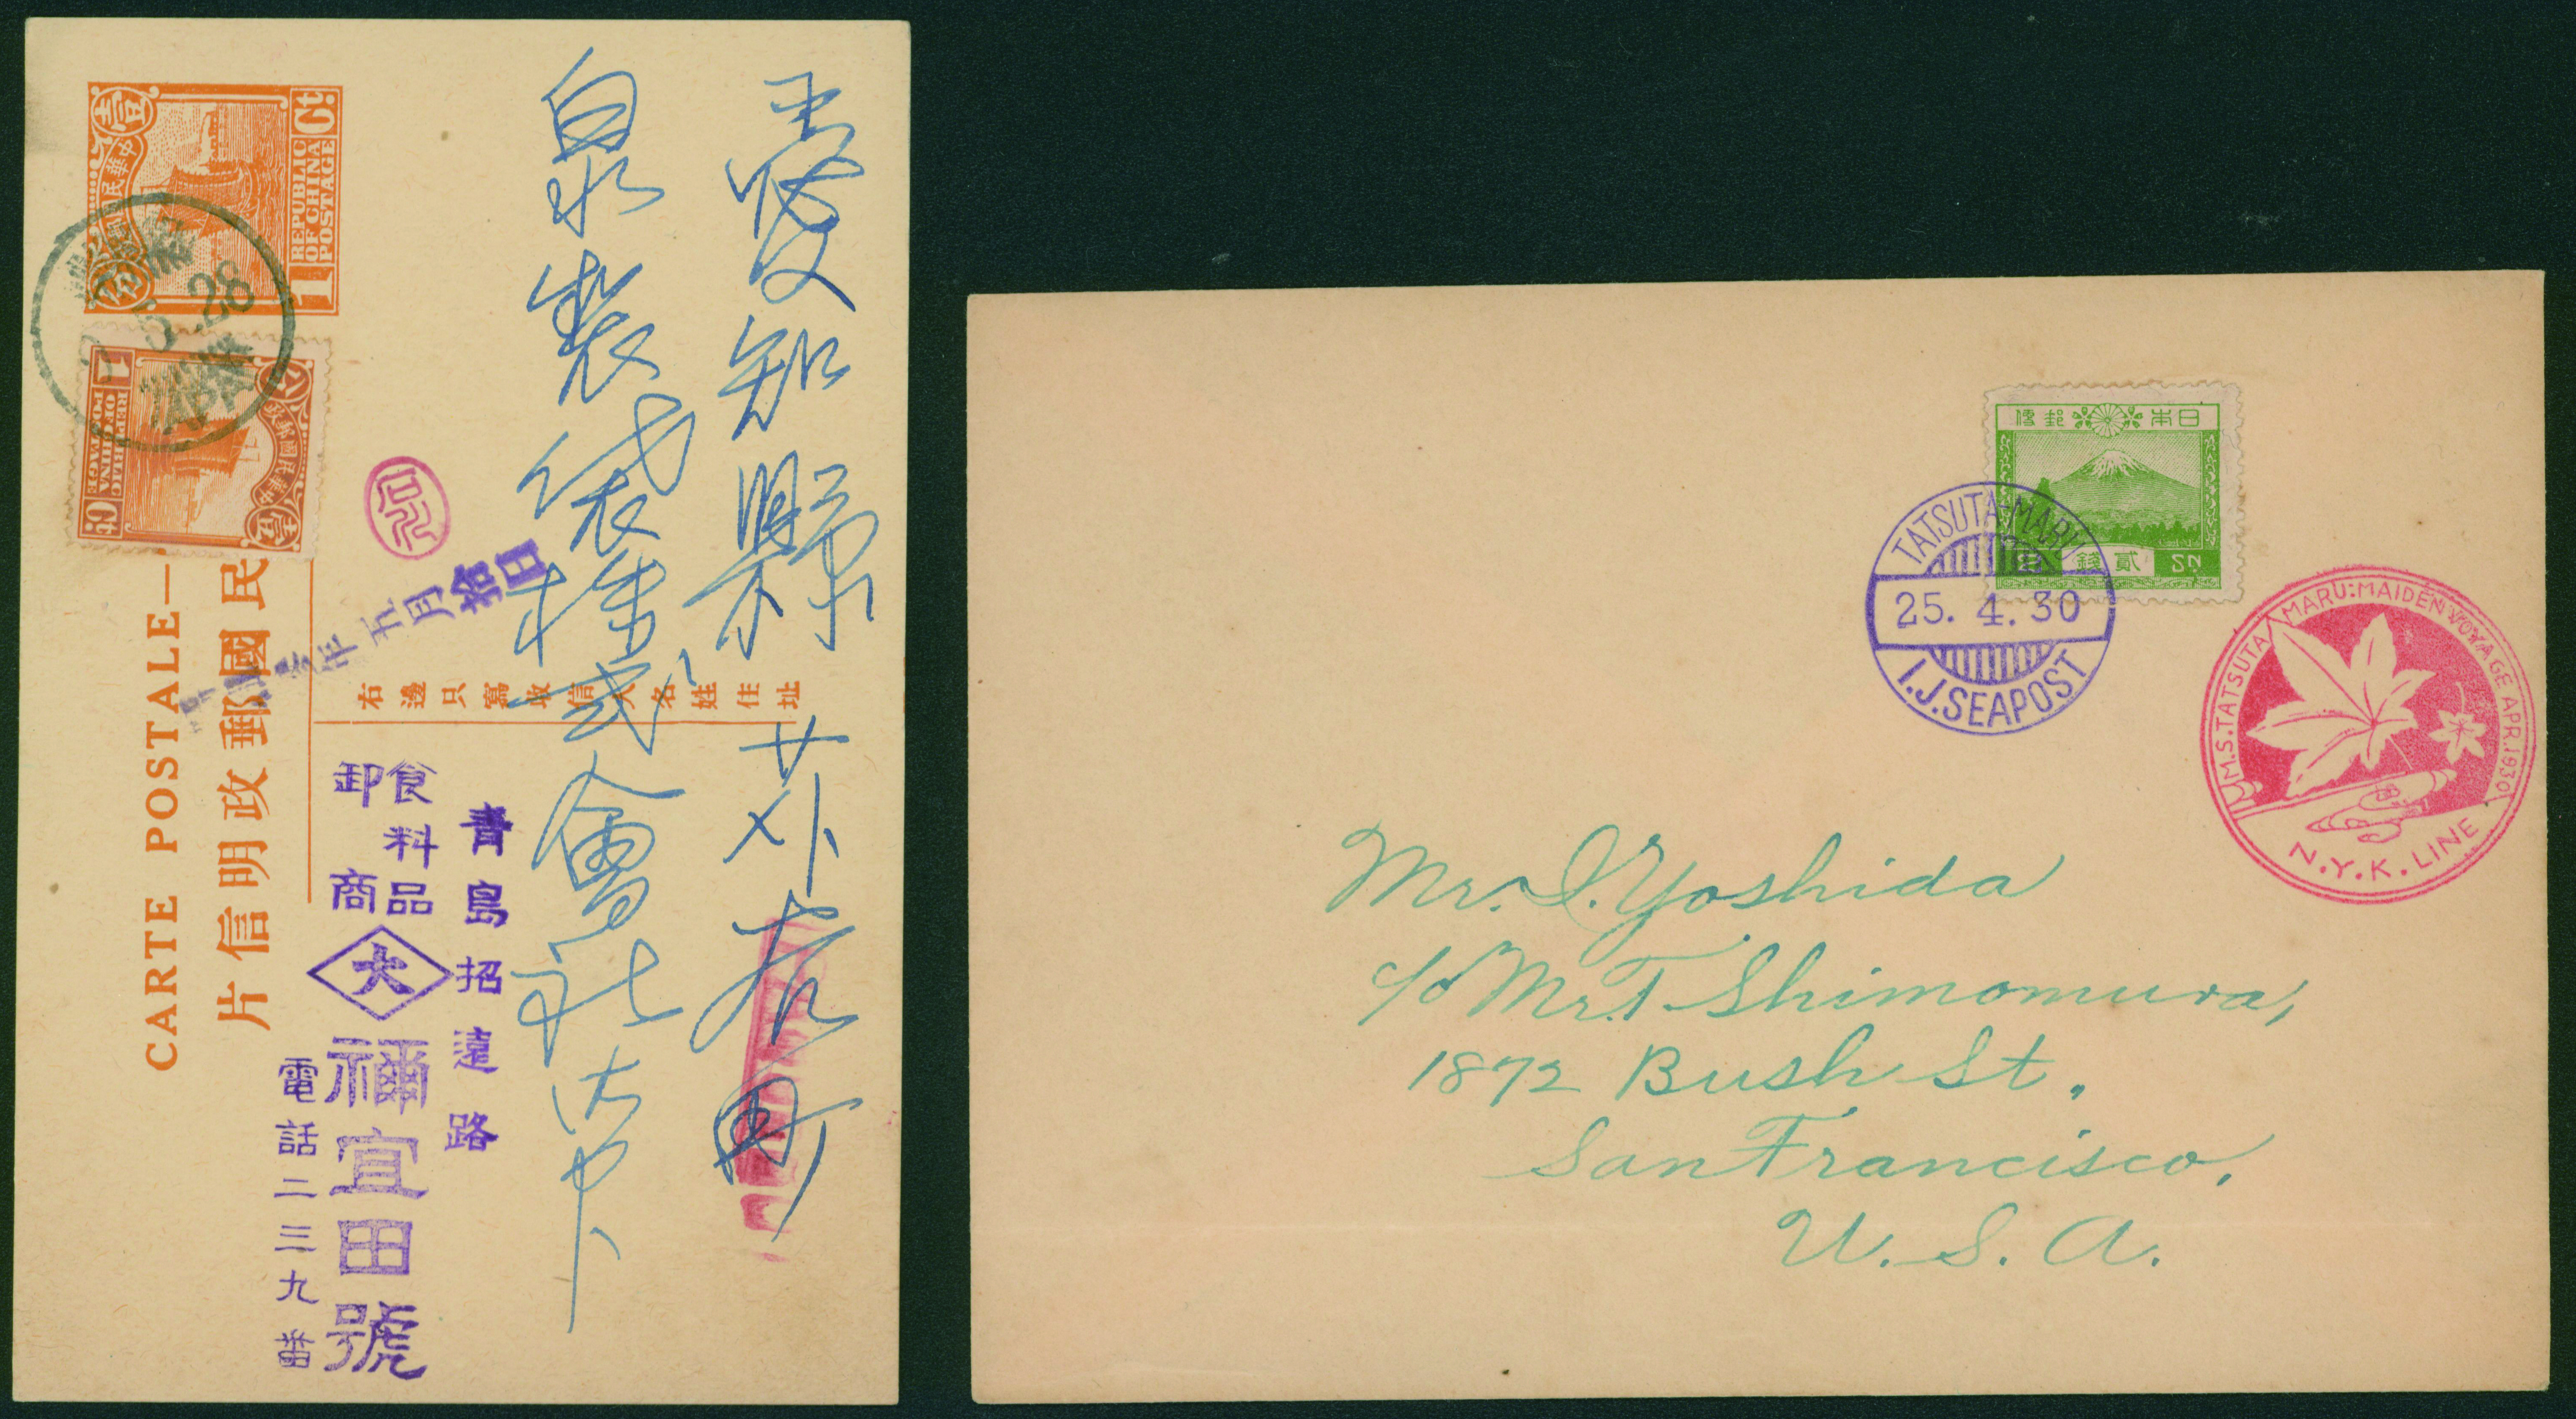 壹
Ct.
中華民國郵政
REPUBLIC
OF CHINA
POSTAGE
1
分
5.28
JAPAN
1
Ct.
REPUBLIC
OF CHINA
POSTAGE
中華民國郵政
壹
CARTE POSTALE—
民國郵政明信片
右邊只寫收信人名姓住址
愛知縣
町
泉製袋株式會社御中
年五月拾日
青島招遠路
食料品
卸商
大
禰宜田號
電話二三九番
日本郵便
貳錢
2 SN
TATSUTA-MARU
25. 4. 30
I.J.SEAPOST
M.S.TATSUTA MARU:MAIDEN VOYAGE APR.1930
N.Y.K. LINE
Mr. I. Yoshida
c/o Mr. T. Shimomura,
1872 Bush St.,
San Francisco,
U. S. A.